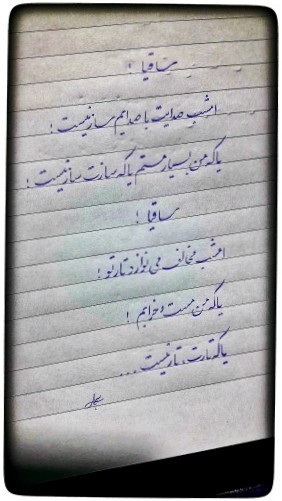 ساقیا !
امشب صدایت با صدایم ساز نیست !
یا که من بسیار مستم یا که سازت ساز نیست !
ساقیا !
امشب مخالف می نوازد تار تو !
یا که من مست و خرابم !
یا که تارت ، تار نیست ...